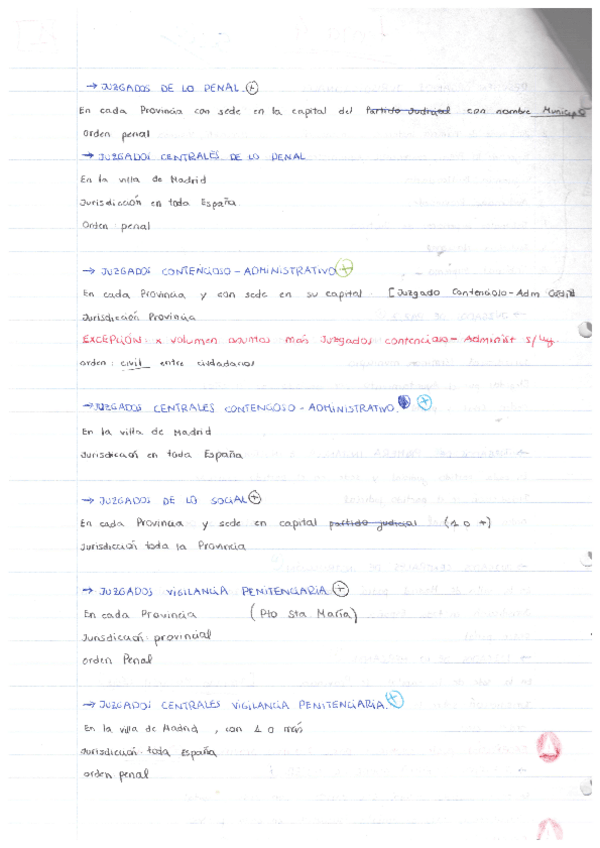 → JUZGADOS DE LO PENAL. +
En cada Provincia con sede en la capital del Partido Judicial con nombre Municip
Orden penal
→ JUZGADOS CENTRALES DE LO PENAL
En la villa de Madrid
Jurisdicción en toda España.
Orden penal
→ JUZGADOS CONTENCIOSO-ADMINISTRATIVO +
En cada Provincia y con sede en su capital. [Juzgado Contencioso-Adm
Jurisdicción Provincia
EXCEPCIÓN: x volumen asuntos más Juzgados contencioso-Administ s/Ley
orden: civil entre ciudadanos
→ JUZGADOS CENTRALES CONTENCIOSO-ADMINISTRATIVO. +
En la villa de Madrid
Jurisdicción en toda España
→ JUZGADOS DE LO SOCIAL +
En cada Provincia y sede en capital partido judicial (1 o +)
Jurisdicción toda la Provincia
→ JUZGADOS VIGILANCIA PENITENCIARIA. +
En cada Provincia (Pto Sta María)
Jurisdicción provincial
orden Penal
→ JUZGADOS CENTRALES VIGILANCIA PENITENCIARIA. +
En la villa de Madrid, con 1 o más
Jurisdicción toda España
orden penal